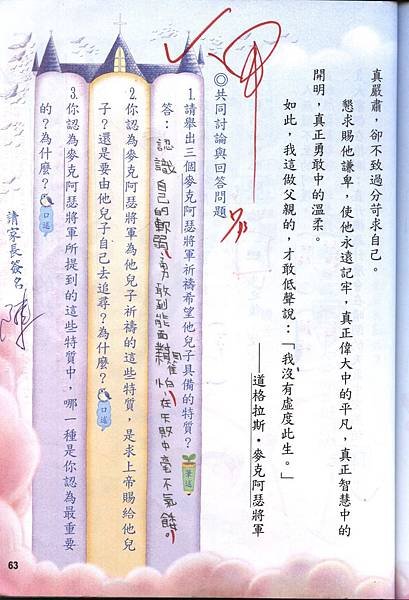 真嚴肅，卻不致過分苛求自己。
懇求賜他謙卑，使他永遠記牢，真正偉大中的平凡，真正智慧中的
開明，真正勇敢中的溫柔。
如此，我這做父親的，才敢低聲說：「我沒有虛度此生。」
——道格拉斯‧麥克阿瑟將軍
◎共同討論與回答問題
1.請舉出三個麥克阿瑟將軍祈禱希望他兒子具備的特質？筆述
答：認識自己的軟弱，勇敢到能面對懼怕，在失敗中毫不氣餒。
2.你認為麥克阿瑟將軍為他兒子祈禱的這些特質，是求上帝賜給他兒
子？還是要由他兒子自己去追尋？為什麼？口述
3.你認為麥克阿瑟將軍所提到的這些特質中，哪一種是你認為最重要
的？為什麼？口述
請家長簽名
陳
63